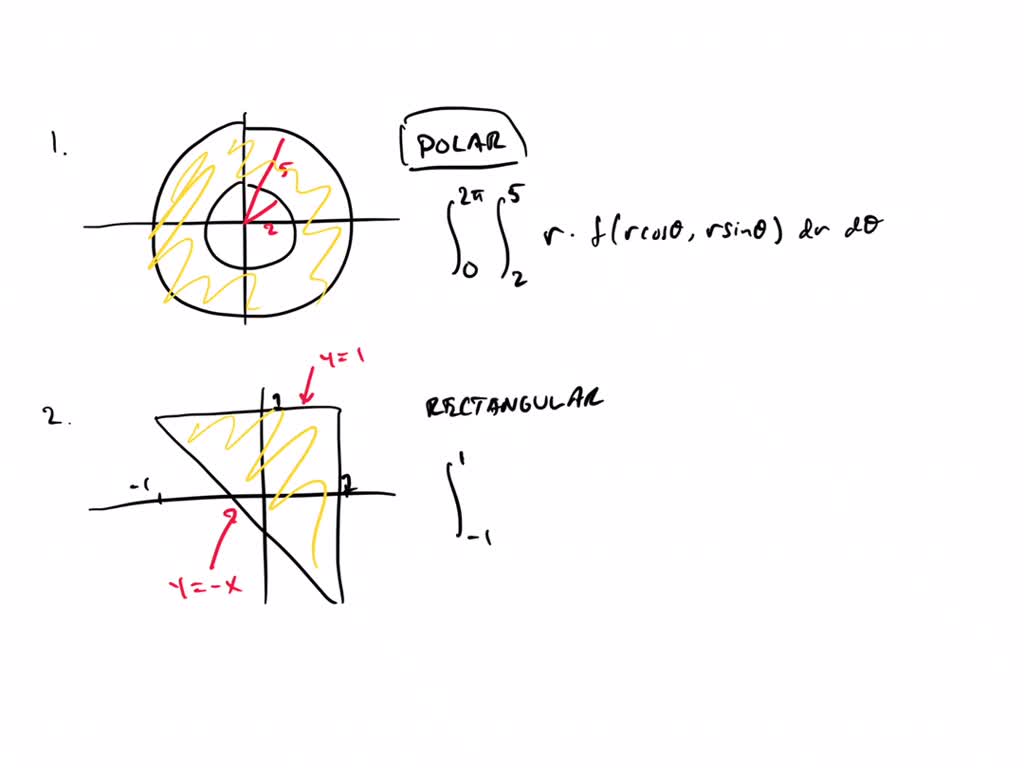 1.
5
2
POLAR
∫₀^2π ∫₂^5 r · f(rcosθ, rsinθ) dr dθ
y=1
2.
1
-1
1
y=-x
RECTANGULAR
∫₋₁^1